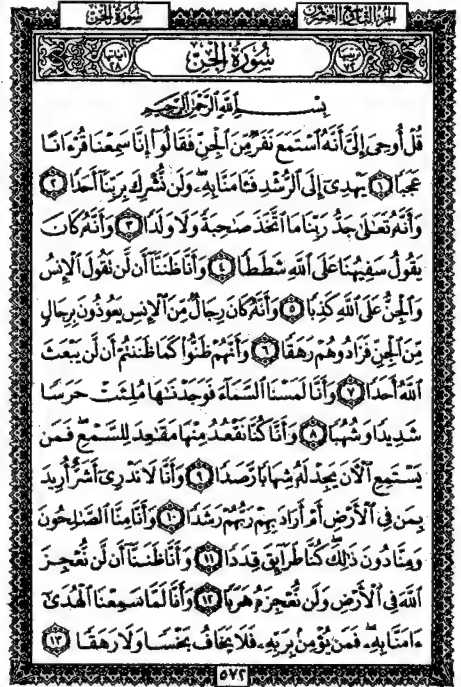 الجزء التاسع والعشرون
سورة الجن
سورة الجن
آياتها ٢٨
بسم الله الرحمن الرحيم
قُلْ أُوحِيَ إِلَيَّ أَنَّهُ ٱسْتَمَعَ نَفَرٌ مِّنَ ٱلْجِنِّ فَقَالُوٓا۟ إِنَّا سَمِعْنَا قُرْءَانًا
عَجَبًا ١ يَهْدِىٓ إِلَى ٱلرُّشْدِ فَـَٔامَنَّا بِهِۦ ۖ وَلَن نُّشْرِكَ بِرَبِّنَآ أَحَدًا ٢
وَأَنَّهُۥ تَعَـٰلَىٰ جَدُّ رَبِّنَا مَا ٱتَّخَذَ صَـٰحِبَةً وَلَا وَلَدًا ٣ وَأَنَّهُۥ كَانَ
يَقُولُ سَفِيهُنَا عَلَى ٱللَّهِ شَطَطًا ٤ وَأَنَّا ظَنَنَّآ أَن لَّن تَقُولَ ٱلْإِنسُ
وَٱلْجِنُّ عَلَى ٱللَّهِ كَذِبًا ٥ وَأَنَّهُۥ كَانَ رِجَالٌ مِّنَ ٱلْإِنسِ يَعُوذُونَ بِرِجَالٍ
مِّنَ ٱلْجِنِّ فَزَادُوهُمْ رَهَقًا ٦ وَأَنَّهُمْ ظَنُّوا۟ كَمَا ظَنَنتُمْ أَن لَّن يَبْعَثَ
ٱللَّهُ أَحَدًا ٧ وَأَنَّا لَمَسْنَا ٱلسَّمَآءَ فَوَجَدْنَـٰهَا مُلِئَتْ حَرَسًا
شَدِيدًا وَشُهُبًا ٨ وَأَنَّا كُنَّا نَقْعُدُ مِنْهَا مَقَـٰعِدَ لِلسَّمْعِ ۖ فَمَن
يَسْتَمِعِ ٱلْـَٔانَ يَجِدْ لَهُۥ شِهَابًا رَّصَدًا ٩ وَأَنَّا لَا نَدْرِىٓ أَشَرٌّ أُرِيدَ
بِمَن فِى ٱلْأَرْضِ أَمْ أَرَادَ بِهِمْ رَبُّهُمْ رَشَدًا ١٠ وَأَنَّا مِنَّا ٱلصَّـٰلِحُونَ
وَمِنَّا دُونَ ذَٰلِكَ ۖ كُنَّا طَرَآئِقَ قِدَدًا ١١ وَأَنَّا ظَنَنَّآ أَن لَّن نُّعْجِزَ
ٱللَّهَ فِى ٱلْأَرْضِ وَلَن نُّعْجِزَهُۥ هَرَبًا ١٢ وَأَنَّا لَمَّا سَمِعْنَا ٱلْهُدَىٰٓ
ءَامَنَّا بِهِۦ ۖ فَمَن يُؤْمِنۢ بِرَبِّهِۦ فَلَا يَخَافُ بَخْسًا وَلَا رَهَقًا ١٣
٥٧٢